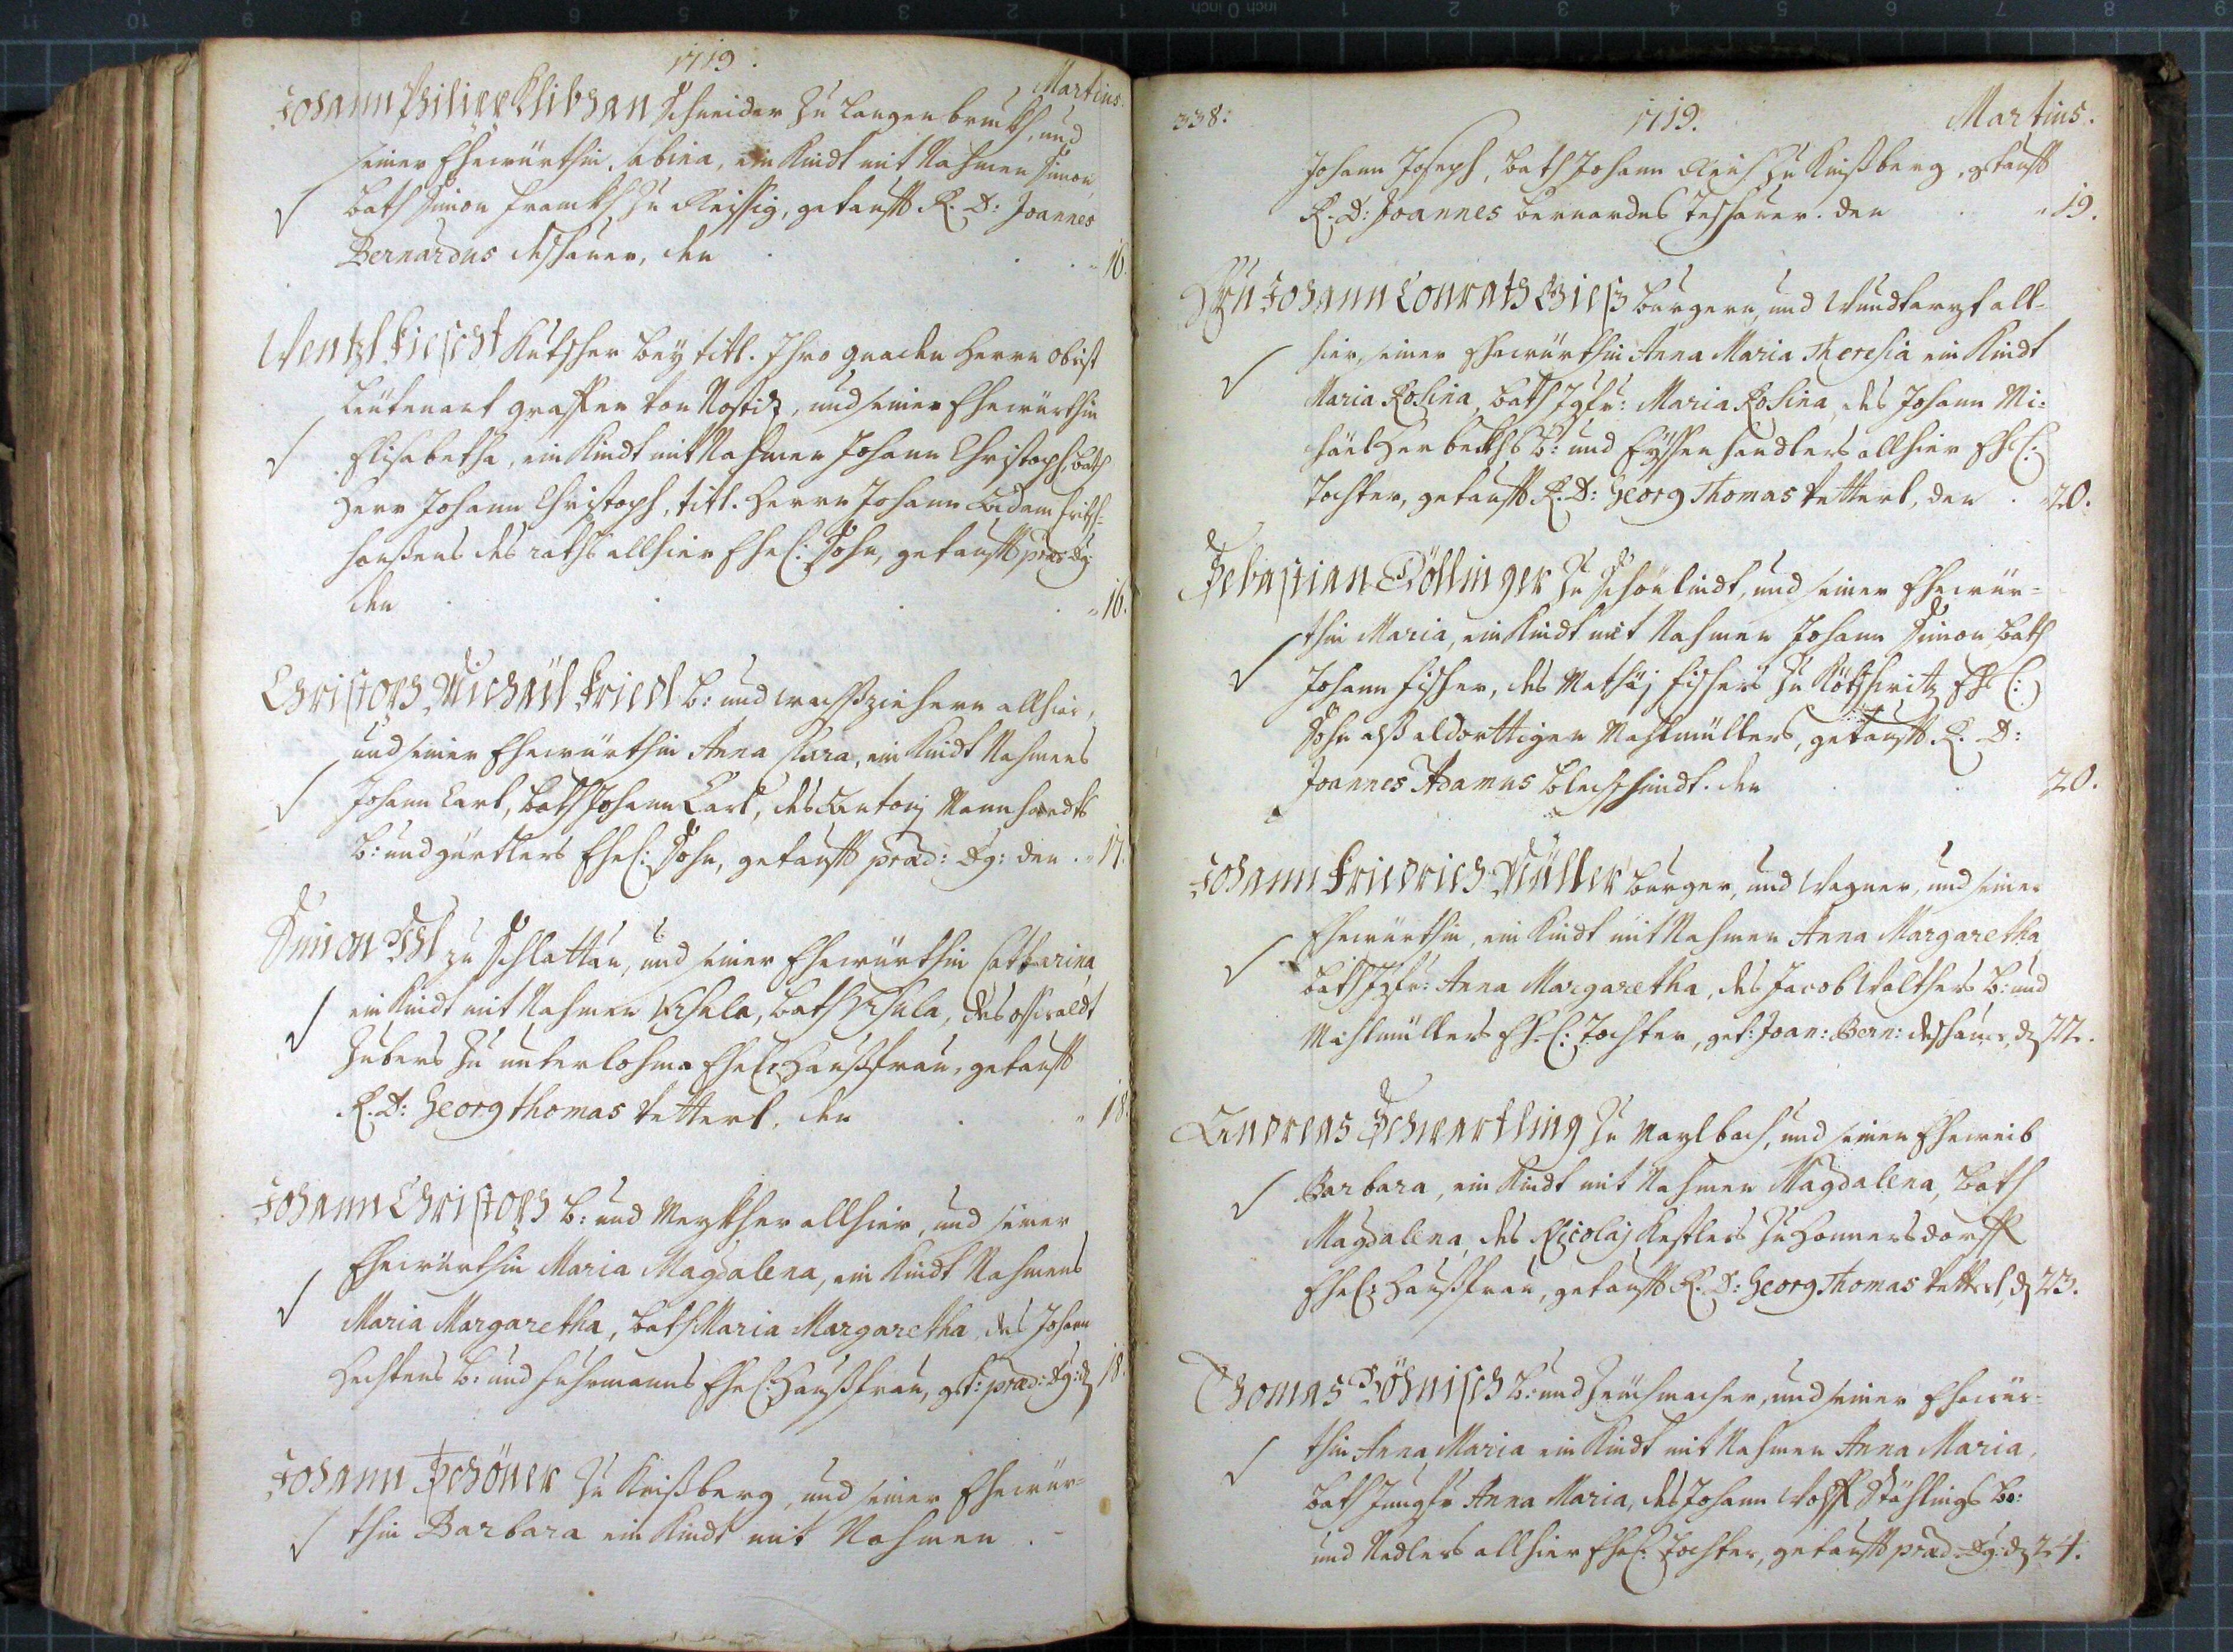 1719.
Martius.
Johann Philipp Klibhan Schneider zu Langenbruckh, und
seiner Ehewürthin Sabina, ein Kindt mit Nahmen Simon,
bath Simon Franckh zu Reissig, getaufft R. D: Joannes
Bernardus deschauer, den 16.
Wentzl Fiescht Kutscher bey titl. Ihro gnaden Herrn obrist
Leutenant graffen von Nostiz, und seiner Ehewürthin
Elisabetha, ein Kindt mit Nahmen Johann Christoph, bath
Herr Johann Christoph, titl. Herrn Johann Adam
des raths allhier Ehel: Sohn, getaufft præd: Dg:
den 16.
Christoph Michaël Friedl b: und wachßziehern allhier,
und seiner Ehewürthin Anna Clara, ein Kindt Nahmens
Johann Carl, bath Johann Carl, des Antonj
b: und gürtlers Ehel: Sohn, getaufft præd: Dg: den 17.
Simon Ihl zu Schlattau, und seiner Ehewürthin Catharina
ein Kindt mit Nahmen Ursula, bath Ursula, des oßwaldt
Hubers zu unterlohma Ehel: Haußfrau, getaufft
R. D: Georg Thomas Vetterl, den 18
Johann Christoph b: und allhier, und seiner
Ehewürthin Maria Magdalena, ein Kindt Nahmens
Maria Margaretha, bath Maria Margaretha, des Johann
b: und fuhrmanns Ehel: Haußfrau, get: præd: Dg: d 18.
Johann Schöner zu Kinßberg, und seiner Ehewür-
thin Barbara ein Kindt mit Nahmen
338:
1719.
Martius.
Johann Joseph, bath Johann zu Kinßberg, getaufft
R. D: Joannes Bernardus Teschauer. den 19.
Hrn Johann Conrath Gieß burgern, und Wundtarzt all-
hier, seiner Ehewürthin Anna Maria Theresia ein Kindt
Maria Rosina, bath Jgfr: Maria Rosina, des Johann Mi-
chäel Herbeckhs b: und Eyssenhandlers allhier Ehel:
Tochter, getaufft R. D: Georg Thomas Vetterl, den 20.
Sebastian Pöllinger zu Schönlindt, und seiner Ehewür-
thin Maria, ein Kindt mit Nahmen Johann Simon, bath
Johann Fischer, des Mathäj Fischers zu Kötschwitz Ehel:
Sohn alß aldorttigen Mahlmüllers, getaufft R. D:
Joannes Adamus Blechschmidt. den 20.
Johann Friedrich Müller burger, und Wagner, und seiner
Ehewürthin, ein Kindt mit Nahmen Anna Margaretha
bath Jgfr: Anna Margaretha, des Jacob Walthers b: und
Mahlmüllers Ehel: Tochter, get: Joan: Bern: deschauer, d 22.
Andreas Schwartling zu Marlbach, und seinen Eheweib
Barbara, ein Kindt mit Nahmen Magdalena, bath
Magdalena, des Nicolaj Kestlers zu Honnersdorff
Ehel: Haußfrau, getaufft R. D: Georg Thomas Vetterl, d 23.
Thomas Böhnisch b: und Zeuchmacher, und seiner Ehewür-
thin Anna Maria ein Kindt mit Nahmen Anna Maria,
bath Jungfr Anna Maria, des Johann Wolff Stöhlings b:
und Nadlers allhier Ehel: Tochter, getaufft præd: Dg: d 24.